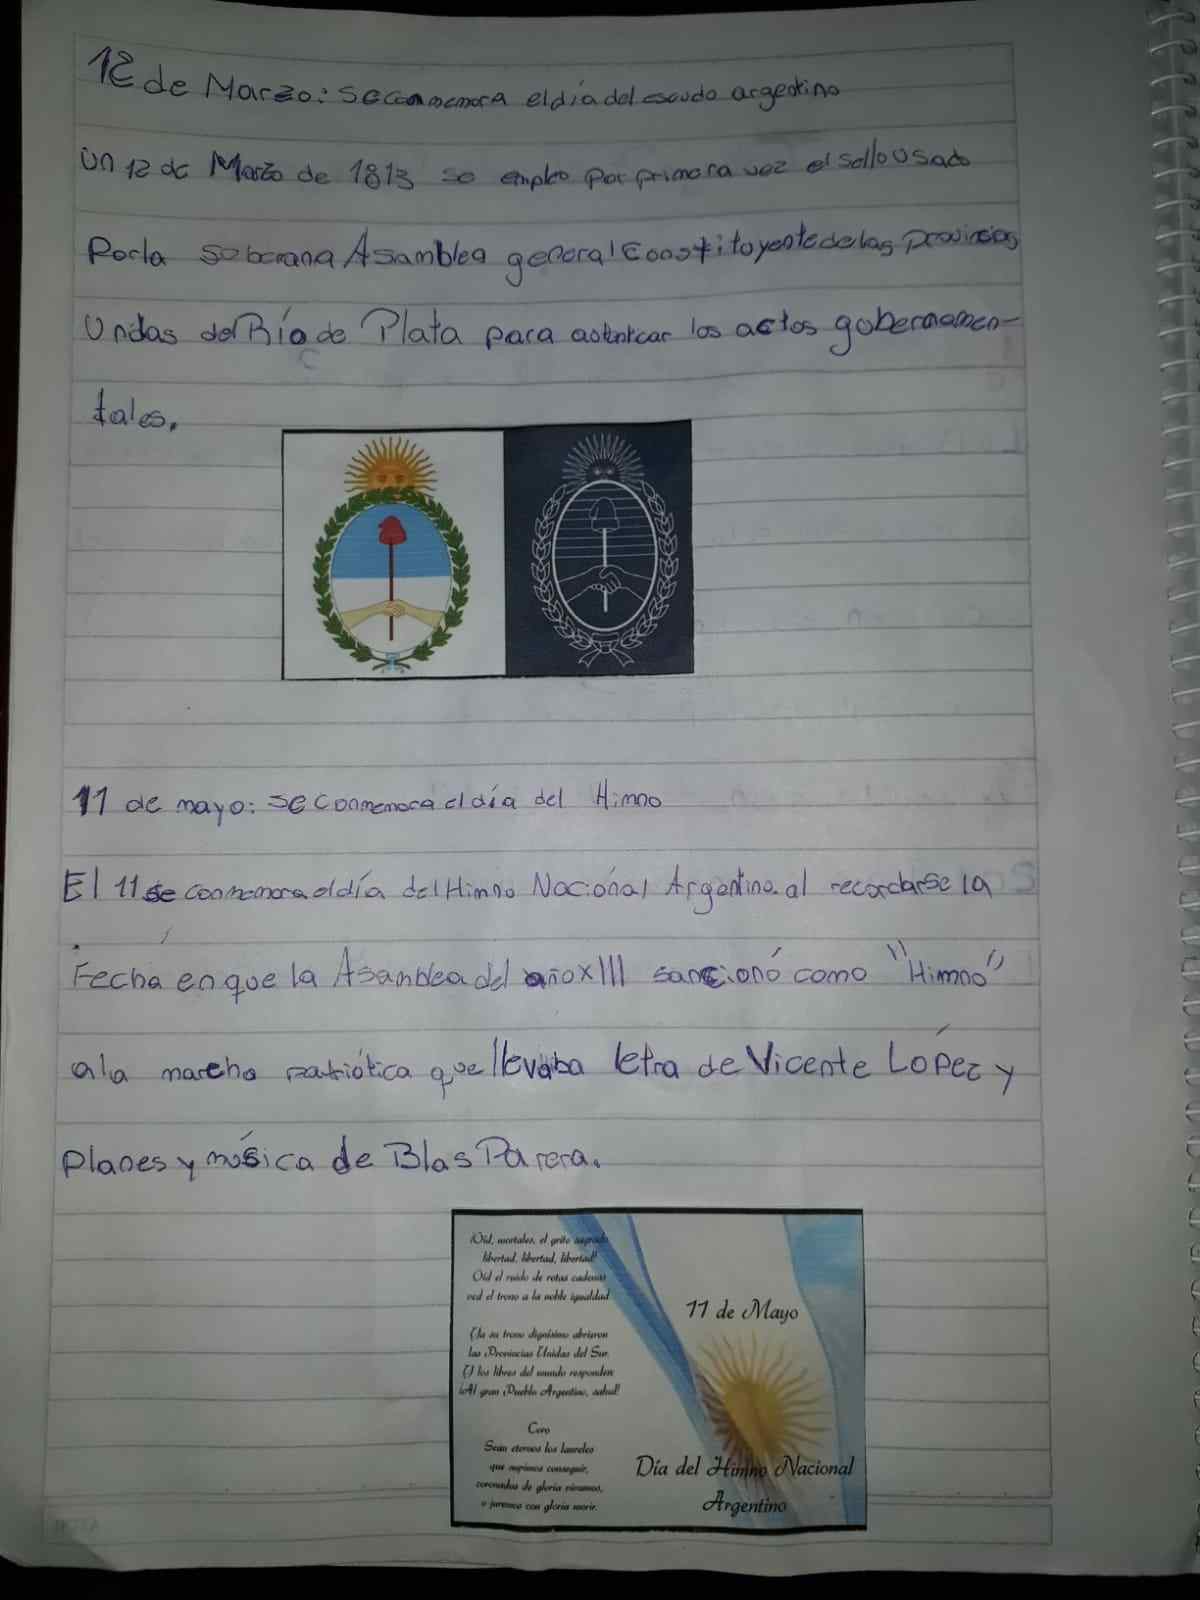 12 de Marzo: se conmemora el día del escudo argentino
Un 12 de Marzo de 1813 se empleo por primera vez el sello usado
Por la soberana Asamblea general Constituyente de las provincias
Unidas del Río de Plata para autenticar los actos gubernamen-
tales.
11 de mayo: se conmemora el día del Himno
El 11 se conmemora el día del Himno Nacional Argentino. al recordarse la
Fecha en que la Asamblea del año XIII sancionó como "Himno"
a la marcha patriótica que llevaba letra de Vicente López y
Planes y música de Blas Parera.
¡Oíd, mortales, el grito sagrado
libertad, libertad, libertad!
Oíd el ruido de rotas cadenas
ved el trono a la noble igualdad
Ya su trono dignísimo abrieron
las Provincias Unidas del Sur.
Y los libres del mundo responden:
¡Al gran Pueblo Argentino, salud!
Coro
Sean eternos los laureles
que supimos conseguir,
coronados de gloria vivamos,
o juremos con gloria morir.
11 de Mayo
Día del Himno Nacional
Argentino